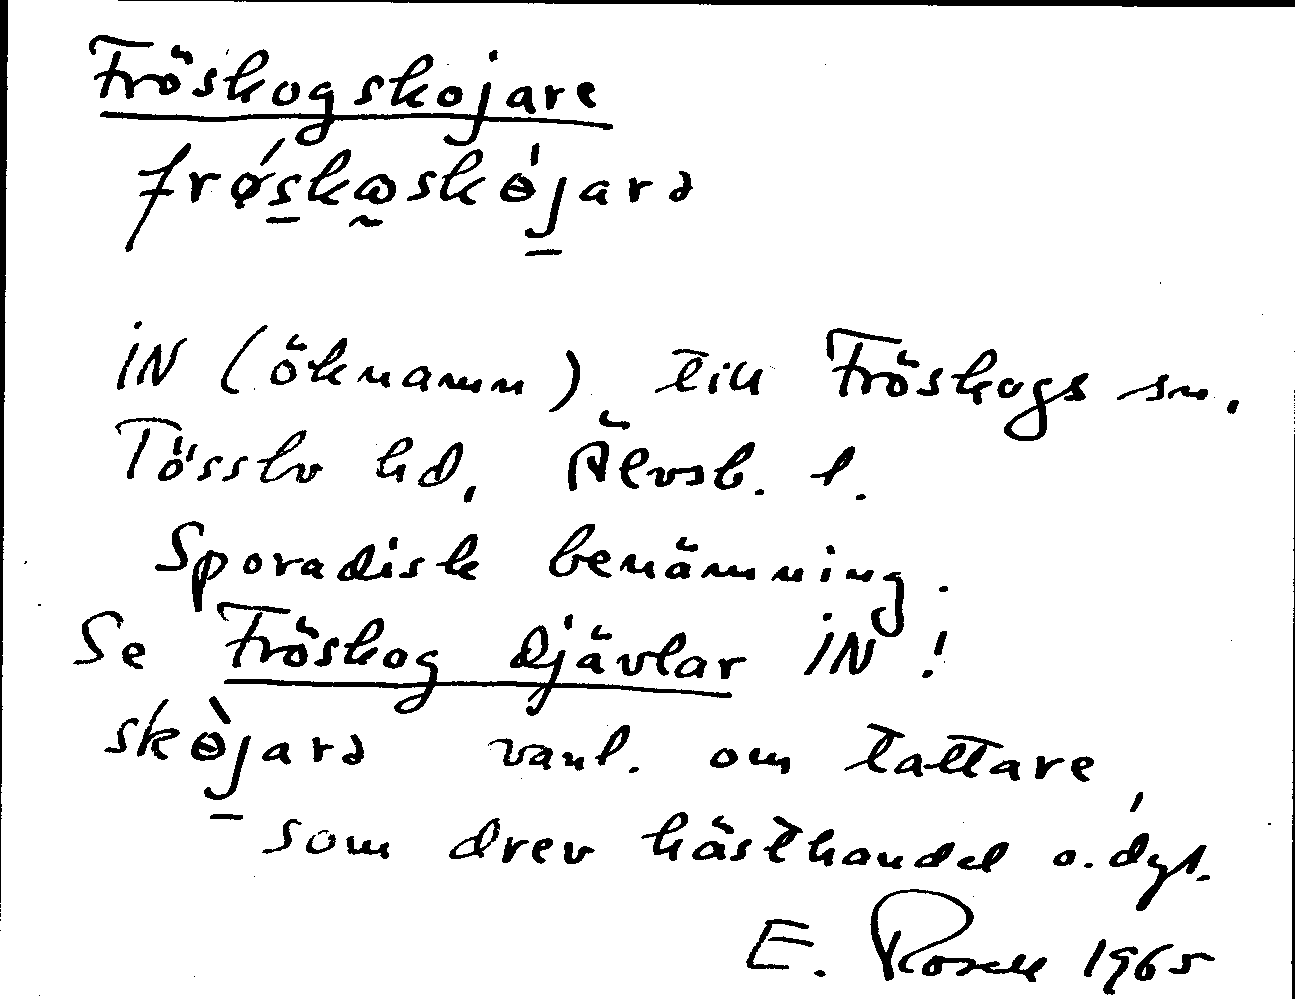 Fröskogskojare
frǿskωskɵ́jarə
IN (öknamn) till Fröskogs sn.
Tössbo hd, Älvsb. l.
Sporadisk benämning.
Se Fröskog djävlar IN!
skɵ̀jarə vanl. om tattare,
som drev hästhandel o. dyl.
E. Rosell 1965